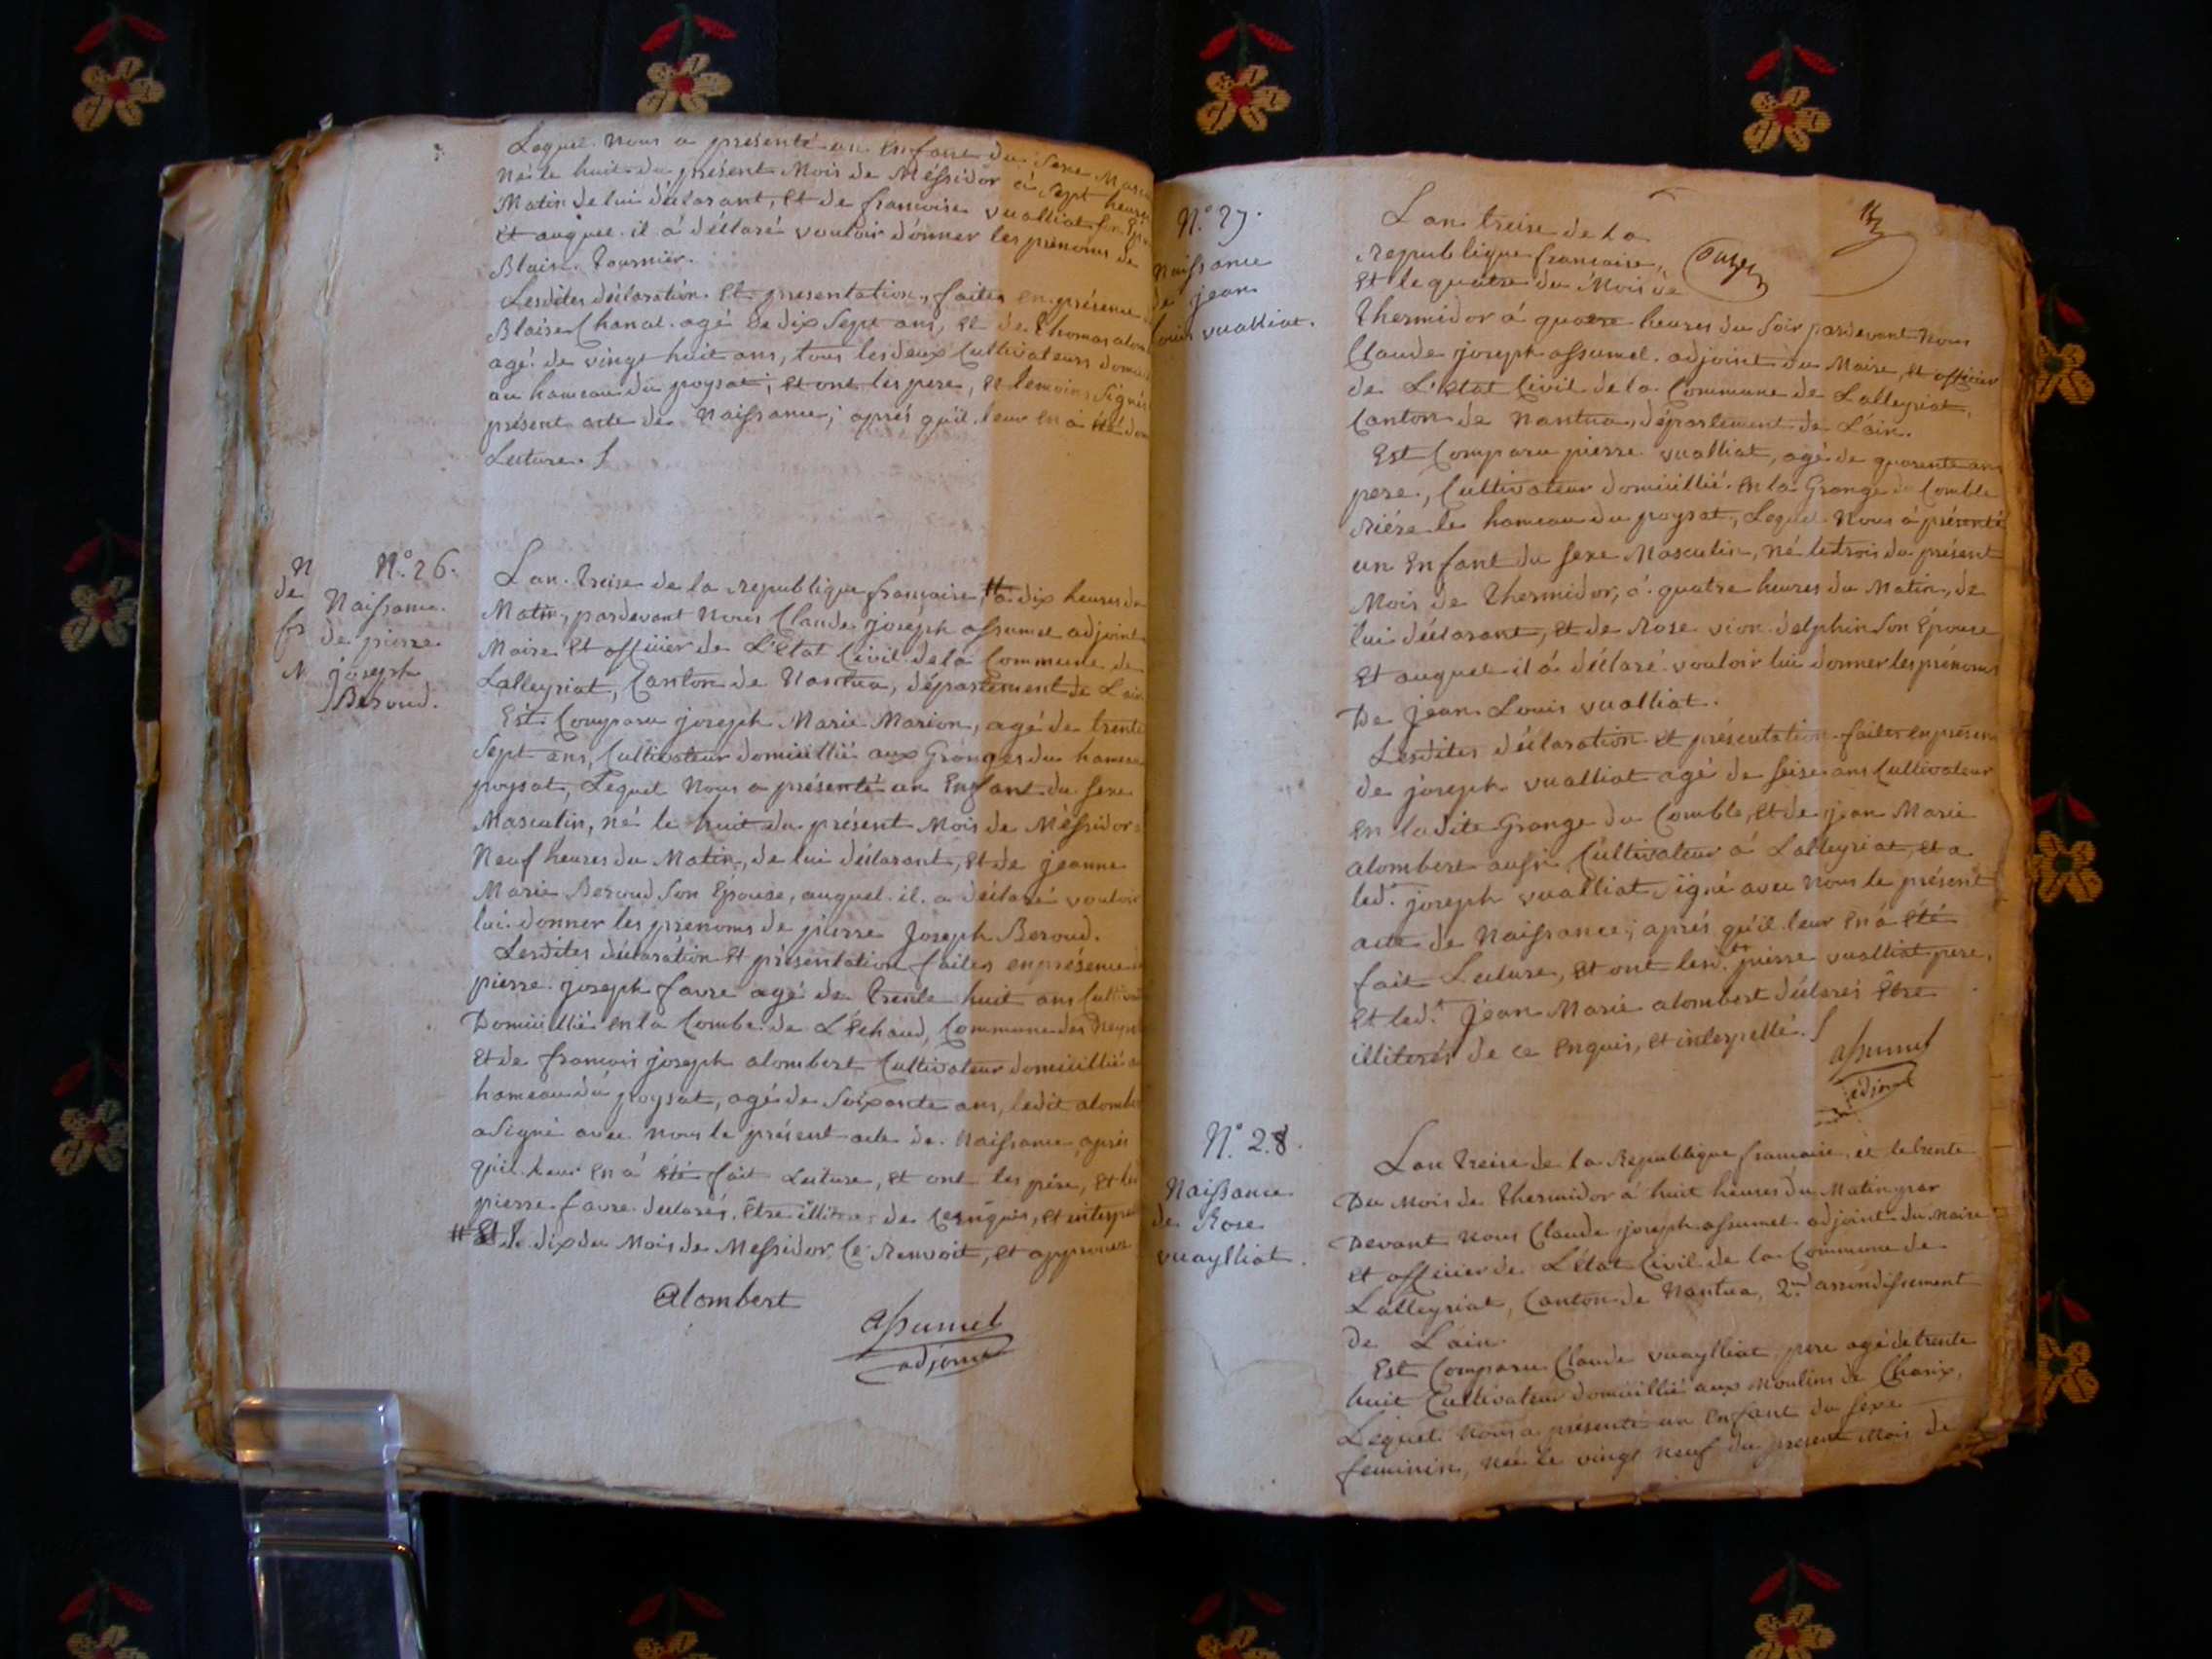 Lequel Nous a présenté un Enfant du Sexe Mascu
Né le huit du présent Mois de Méssidor à Sept heures
Matin de lui déclarant, Et de francoise vualliat son Epou
Et auquel il á déclaré vouloir donner les prénoms de
Blaise Tournier.
Lesdites déclaration Et présentation, faites en présence
Blaise Chanal agé de dix Sept ans, Et de Thomas alom
agé de vingt huit ans, tous les deux Cultivateurs domici
au hameau du poysat; Et ont les pere, Et temoins Signés
présent acte de Naissance; aprés qu'il leur En á été don
Lecture.
N
de
fr
N
N.º 26.
Naissance
de pierre
joseph
Beroud.
Lan Treise de la republique française, # á dix heures du
Matin, pardevant Nous Claude joseph assumel adjoint
Maire Et officier de L'Etat Civil de la Commune de
Lalleyriat, Canton de Nantua, département de Lain
Est Comparu joseph Marie Marion, agé de trente
Sept ans, Cultivateur domicillié aux Granges du hameau
poysat, Lequel Nous a présenté un Enfant du Sexe
Masculin, né le huit du présent Mois de Méssidor
Neuf heures du Matin, de lui déclarant, Et de jeanne
Marie Beroud Son Epouse, auquel il a déclaré vouloir
lui donner les prenoms de pierre Joseph Beroud.
Lesdites déclaration Et présentation faites en présence
pierre joseph favre agé de Trente huit ans Cultiva
Domicillié En la Combe de L'Echaud, Commune des Neyro
Et de francois joseph alombert Cultivateur domicillié a
hameau du poysat, agé de Soixante ans, ledit alombe
a Signé avec Nous le présent acte de Naissance, aprés
qu'il leur En á été fait Lecture, Et ont les pére, Et led
pierre favre declarés Etre illiterés de Ce Enquis, Et interpel
# Et le dix du Mois de Messidor Ce Renvoit, Et approuvé
alombert
assumel
adjoint
N.º 27.
Naissance
de jean
Louis vualliat.
Lan treise de la
republique francaise,
Et le quatre du Mois de
Thermidor á quatre heures du Soir pardevant Nous
Claude joseph assumel adjoint du Maire, Et officier
de L'Etat Civil de la Commune de Lalleyriat,
Canton de Nantua, département de Lain.
Est Comparu pierre vualliat, agé de quarente ans
pere, Cultivateur domicillié En la Grange du Comble
riére le hameau du poysat, Lequel Nous á présenté
un Enfant du Sexe Masculin, Né le trois du présent
Mois de Thermidor, á quatre heures du Matin, de
lui déclarant, Et de Rose vion delphin Son Epouse
Et auquel il á déclaré vouloir lui donner les prénoms
De Jean Louis vualliat.
Lesdites déclaration Et présentation faites en présence
de joseph vualliat agé de Seise ans Cultivateur
En ladite Grange du Comble, Et de jean Marie
alombert aussi Cultivateur á Lalleyriat, Et a
led.t joseph vualliat Signé avec Nous le présent
acte de Naissance; aprés qu'il leur En á été
fait Lecture, Et ont lesd.ts pierre vualliat pere,
Et led.t Jean Marie alombert déclarés Etre
illiterés de ce Enquis, Et interpellé.
assumel
adjoint
N.º 28.
Naissance
de Rose
vuaylliat.
Lan Treise de la Republique francaise, et le trente
Du Mois de Thermidor á huit heures du Matin par
Devant Nous Claude joseph assumel adjoint du Maire
Et officier de L'Etat Civil de la Commune de
Lalleyriat, Canton de Nantua, 2.me arrondissement
de Lain.
Est Comparu Claude vuaylliat pere agé de trente
huit Cultivateur domicillié aux Moulins de Charix,
Lequel Nous a présenté un Enfant du Sexe
feminin, Née le vingt neuf du présent Mois de